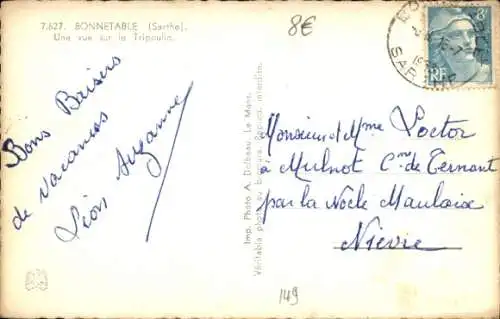 7.627. BONNETABLE (Sarthe).
Une vue sur le Tripoulin.
8€
8F
RF
SAR
Bons Baisers
de Vacances
Léon Suzanne
Imp. Photo A. Dolbeau. Le Mans.
Véritable photo au bromure. Reprod. interdite.
Monsieur et Mme Loctor
à Mulnot Cne de Ternant
par la Nocle Maulaix
Nièvre
149